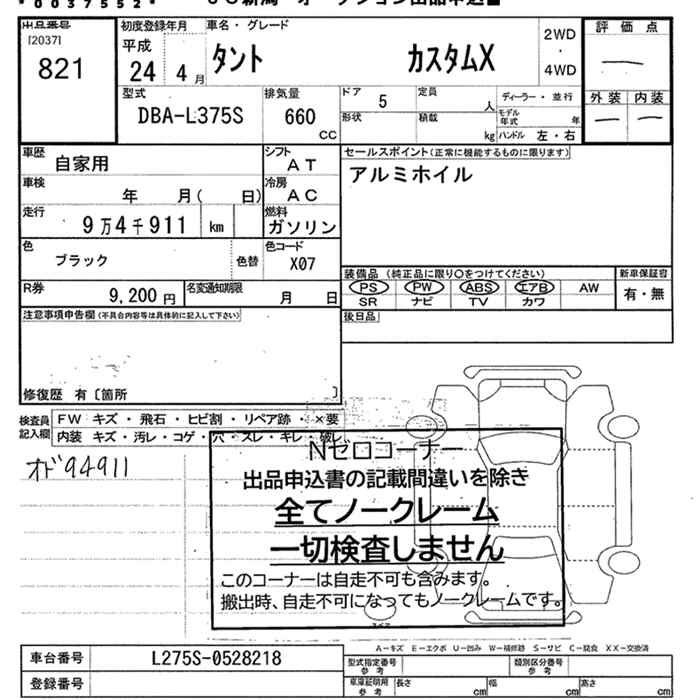 *0037552*
出品番号 初度登録年月 車名・グレード 2WD 評価点
[2037] 平成 ・
821 24 4月 タント カスタムX 4WD ―
型式 排気量 ドア 5 定員 人 ディーラー・並行 外装 内装
DBA-L375S 660 cc 形状 積載 kg モデル年式 年 ― ―
ハンドル 左・右
車歴 自家用 シフト AT セールスポイント(正常に機能するものに限ります)
車検 年 月( 日) 冷房 AC アルミホイル
走行 9万4千911 km 燃料 ガソリン
色 ブラック 色替 色コード X07
装備品(純正品に限り○をつけてください) 新車保証書
R券 9,200円 名変通知期限 月 日 PS PW ABS エアB AW 有・無
SR ナビ TV カワ
注意事項申告欄(不具合内容等は具体的に記入して下さい) 後日品
修復歴 有〔箇所 〕
検査員記入欄 FW キズ・飛石・ヒビ割・リペア跡・×要
内装 キズ・汚レ・コゲ・穴・スレ・キレ・破レ
オド94911
Nゼロコーナー
出品申込書の記載間違いを除き
全てノークレーム
一切検査しません
このコーナーは自走不可も含みます。
搬出時、自走不可になってもノークレームです。
A-キズ E-エクボ U-凹み W-補修跡 S-サビ C-腐食 XX-交換済
車台番号 L275S-0528218 型式指定番号 参考 類別区分番号 参考
登録番号 車庫証明用 参考 長さ cm 幅 cm 高さ cm